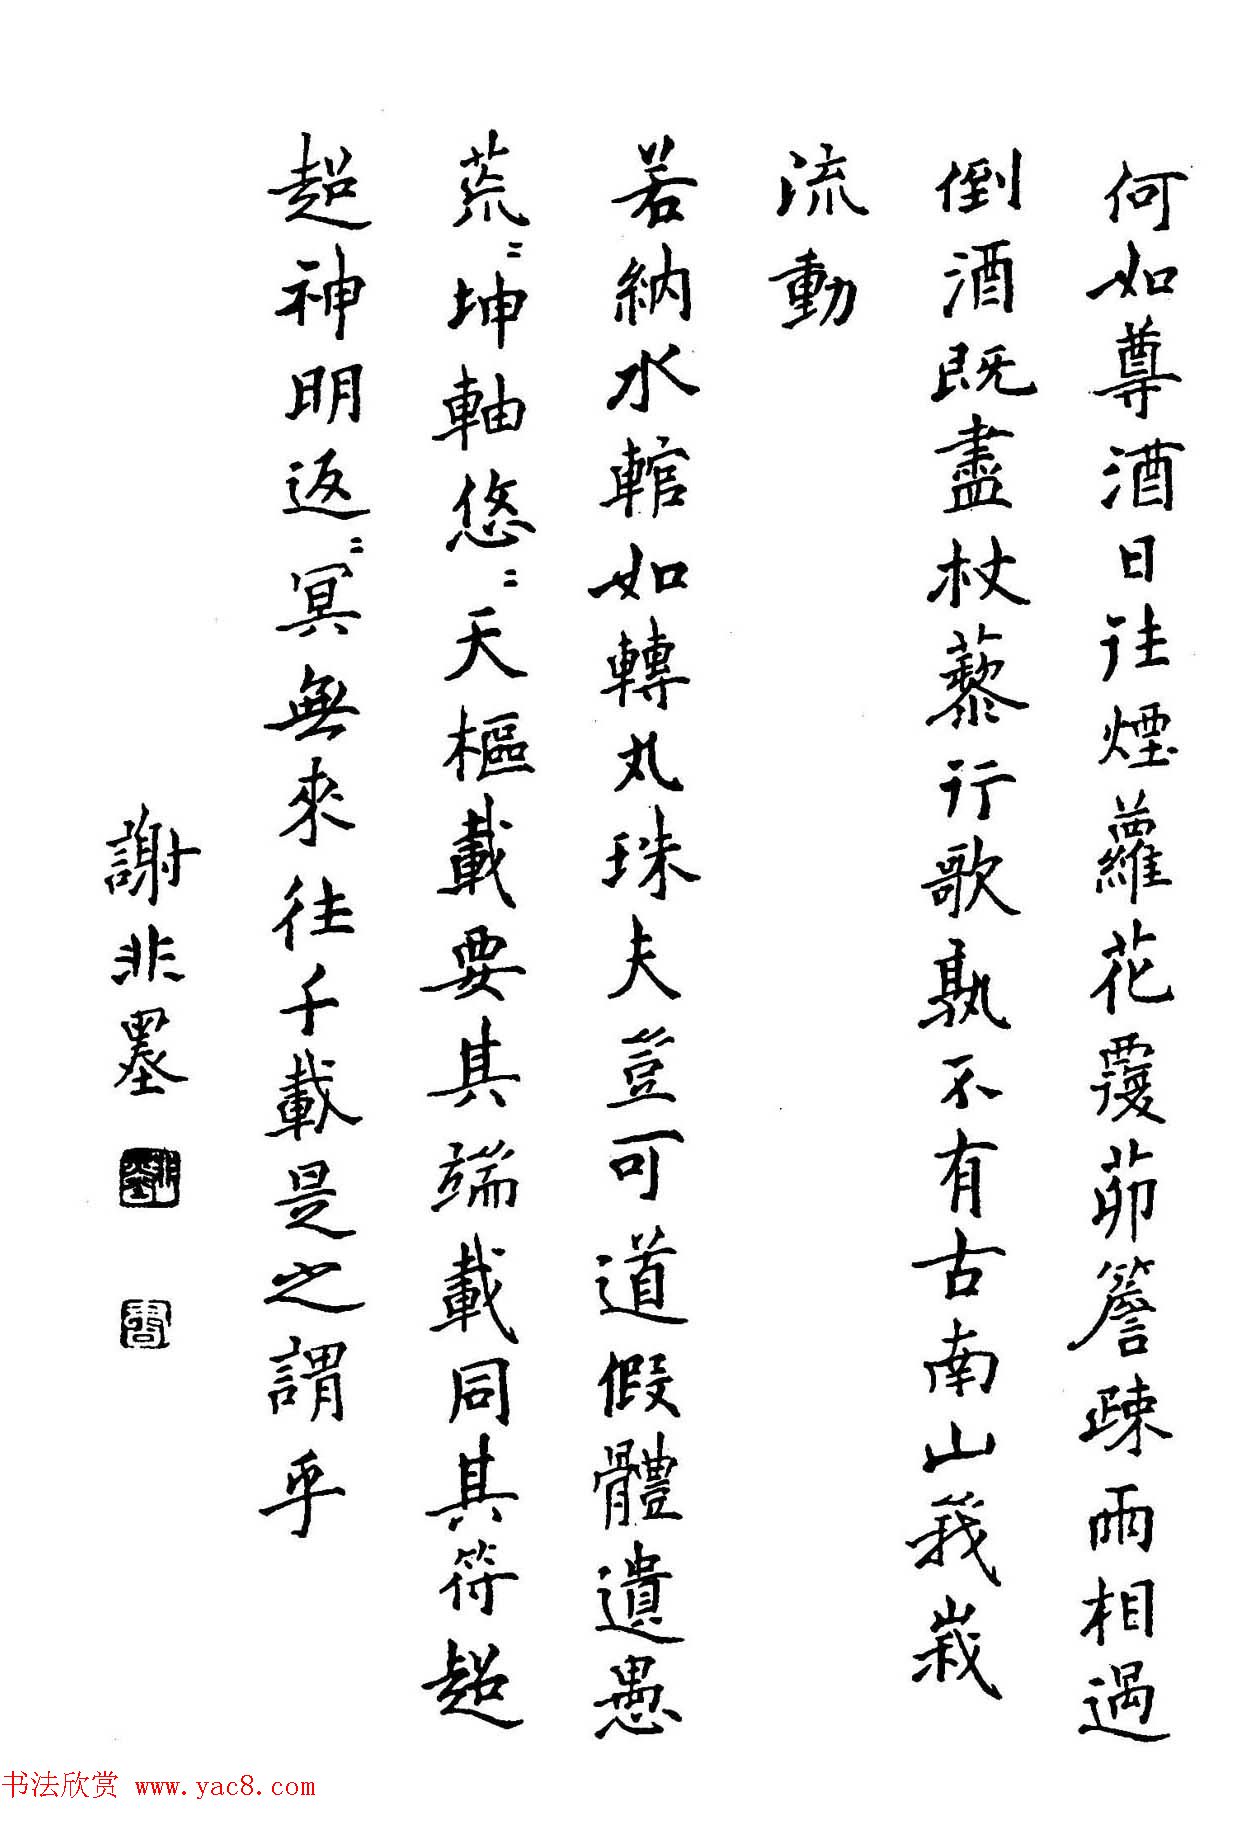 何如尊酒日往煙蘿花覆茆簷疎雨相過
倒酒既盡杖藜行歌孰不有古南山峩峩
流動
若納水輨如轉丸珠夫豈可道假體遺愚
荒〻坤軸悠〻天樞載要其端載同其符超
超神明返〻冥無來往千載是之謂乎
謝非墨
書法欣赏 www.yac8.com